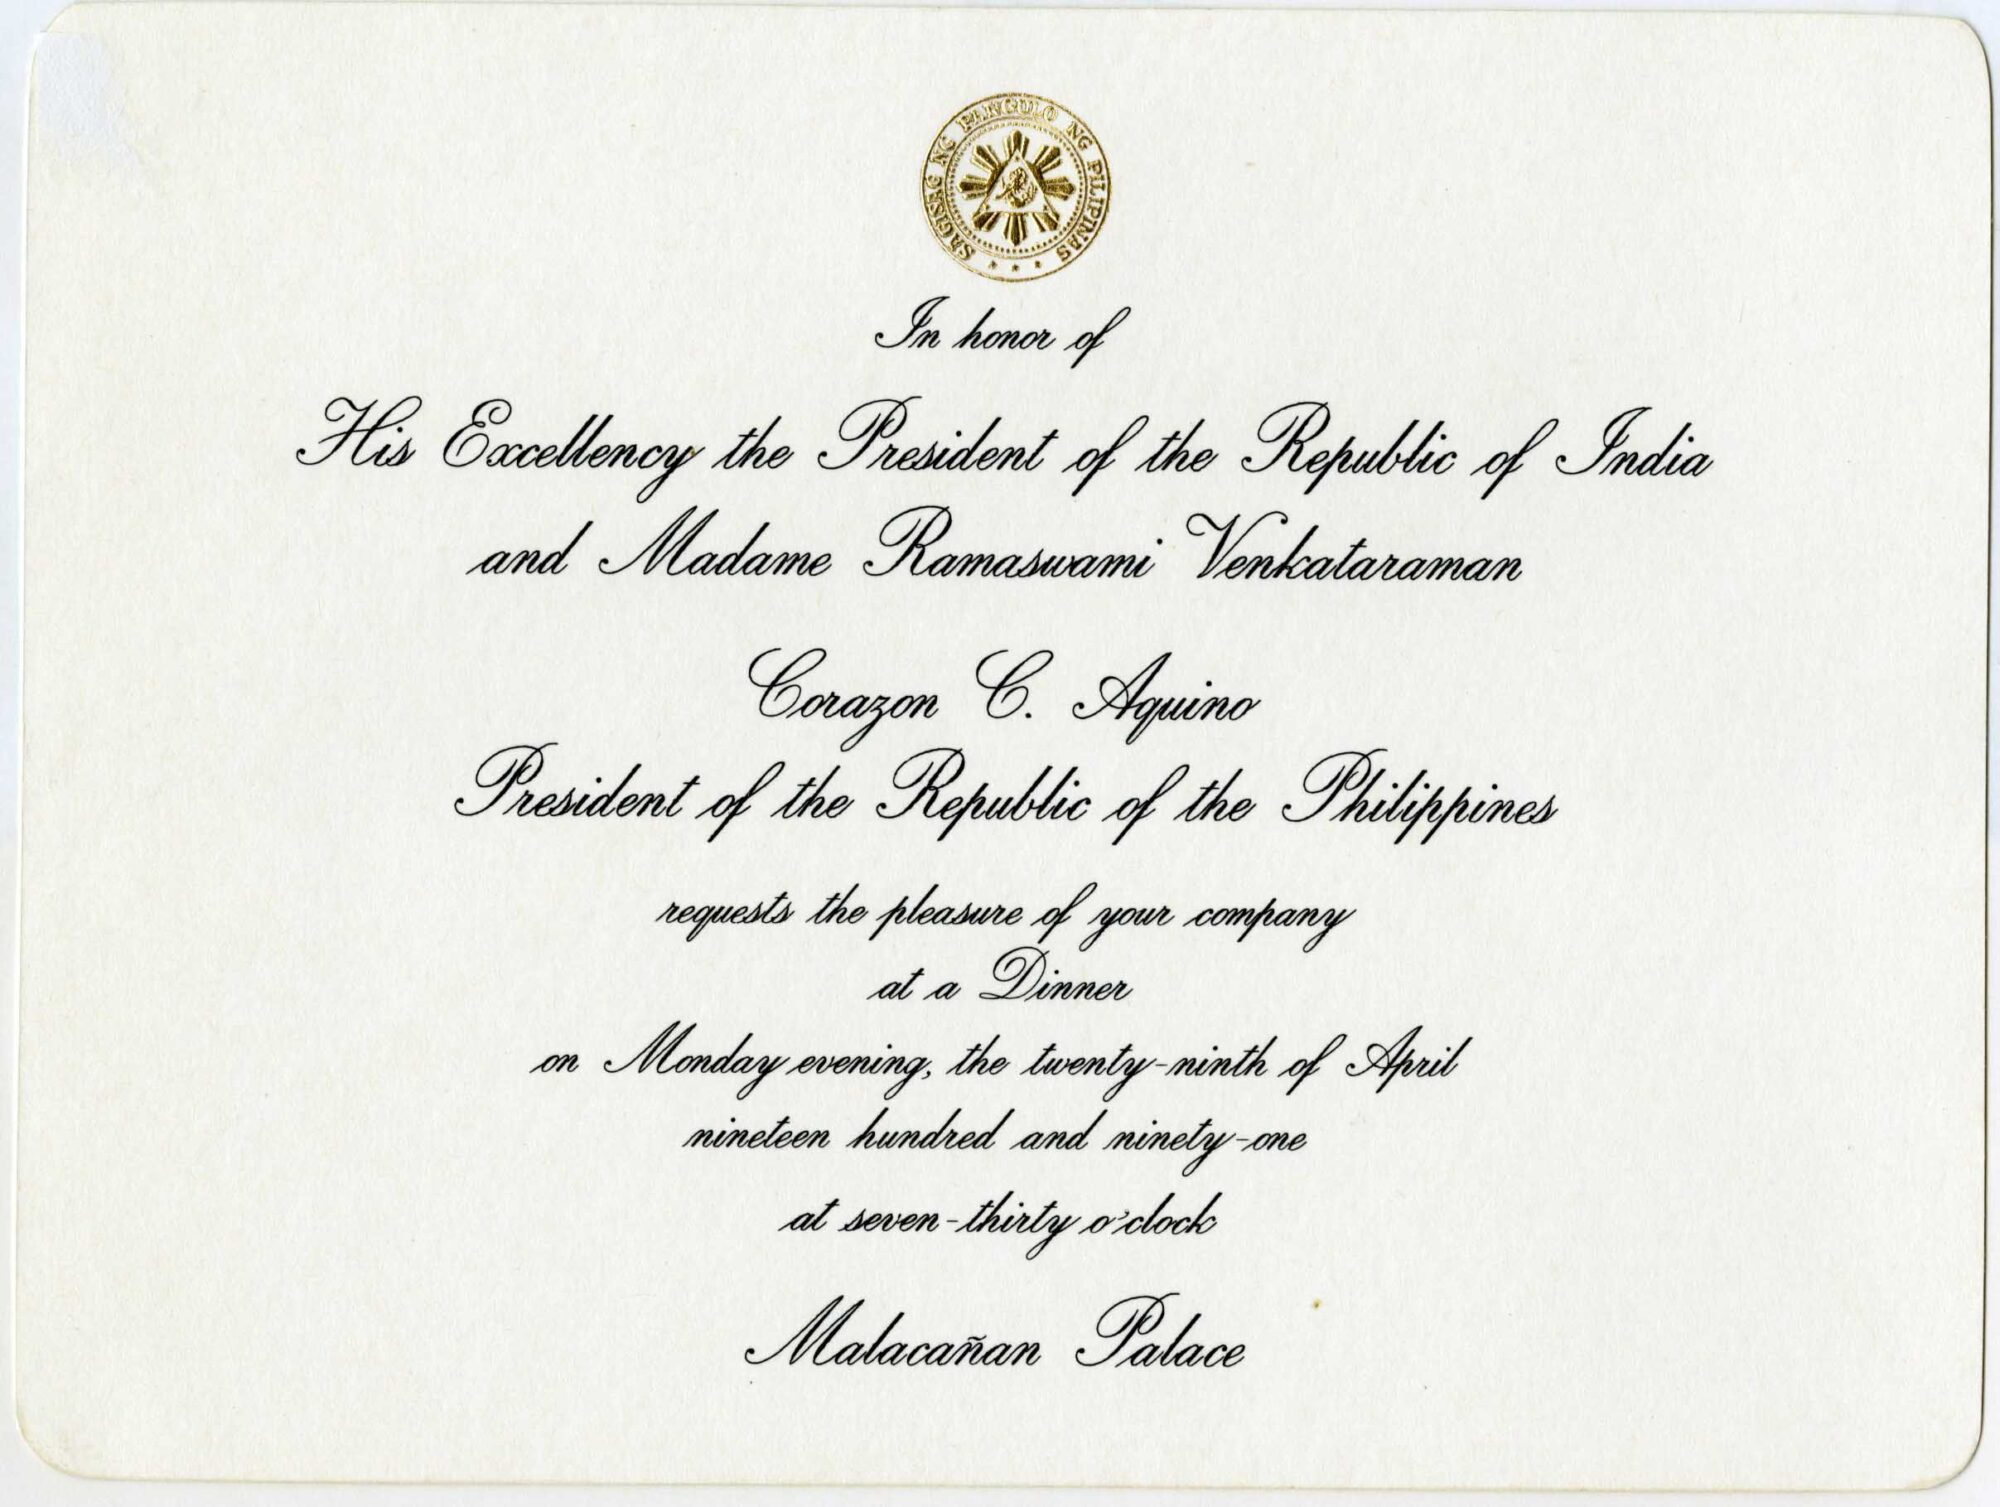 SAGISAG NG PANGULO NG PILIPINAS
In honor of
His Excellency the President of the Republic of India
and Madame Ramaswami Venkataraman
Corazon C. Aquino
President of the Republic of the Philippines
requests the pleasure of your company
at a Dinner
on Monday evening, the twenty-ninth of April
nineteen hundred and ninety-one
at seven-thirty o'clock
Malacañan Palace